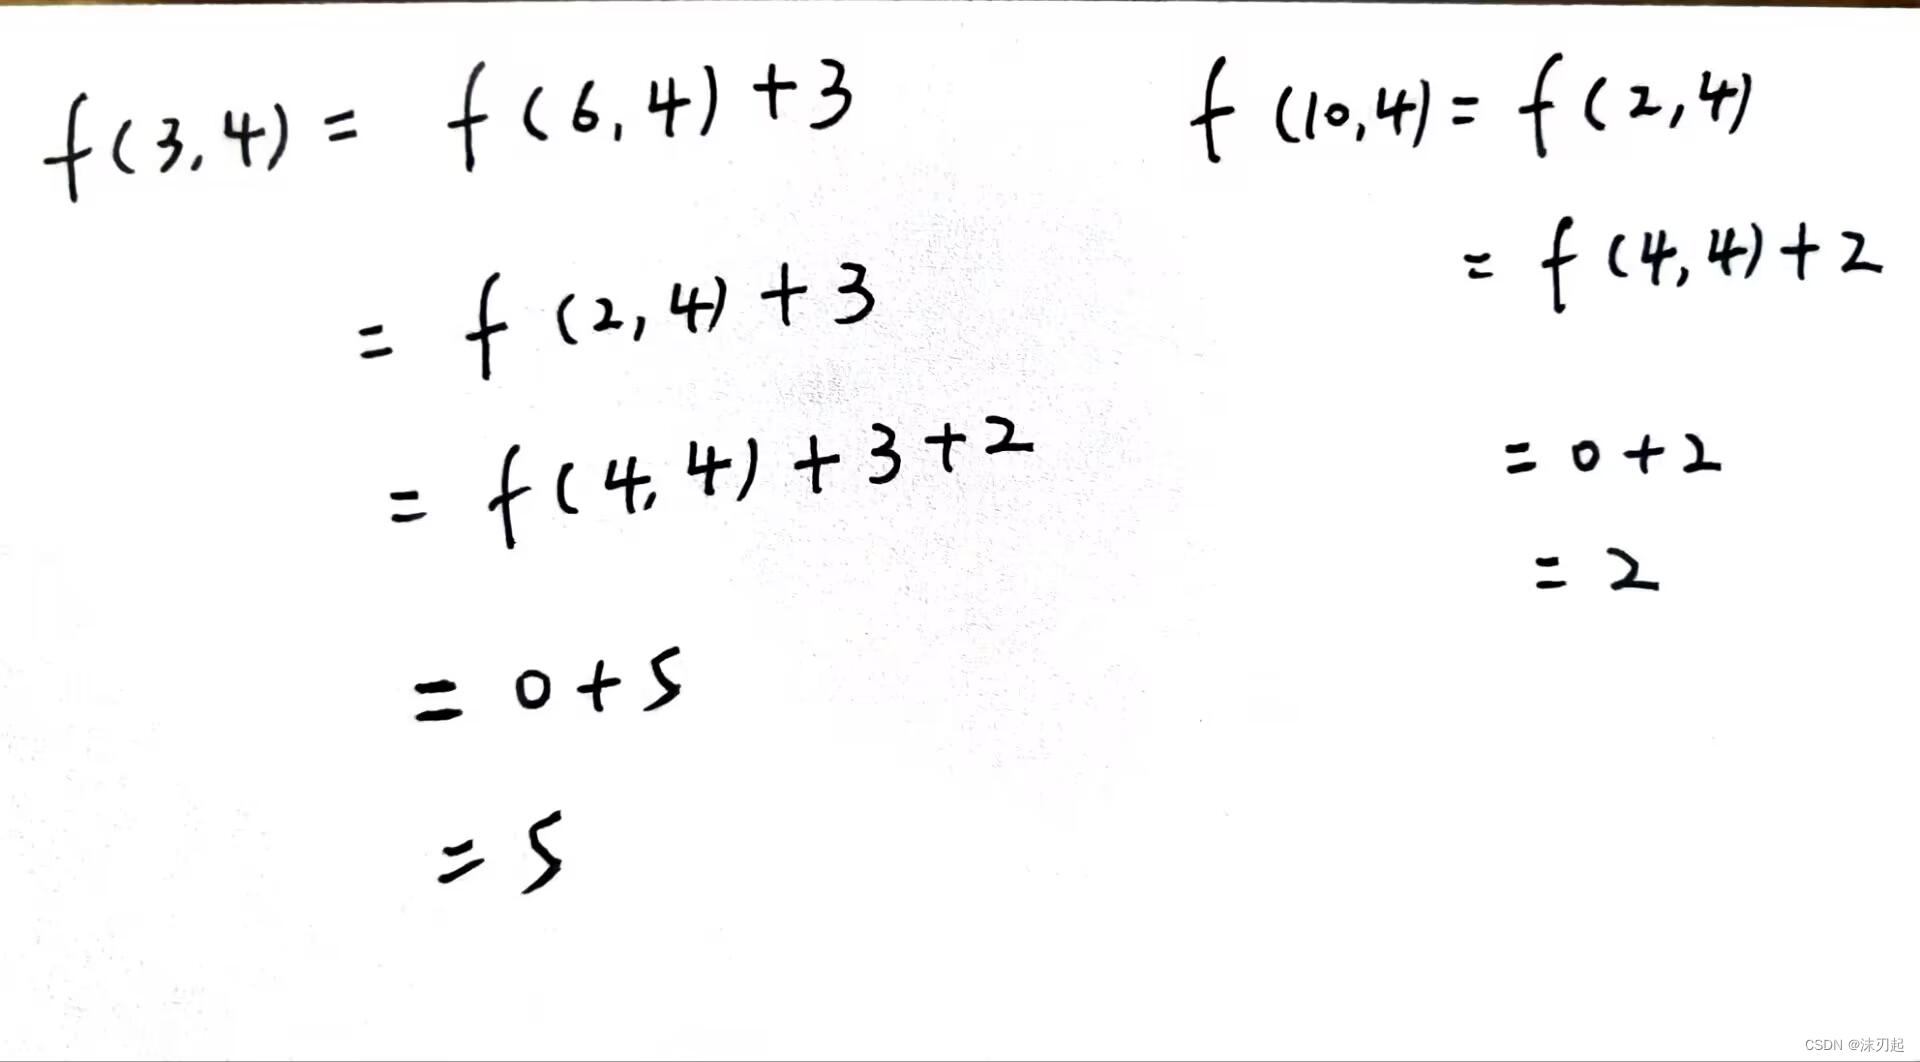 f(3,4) = f(6,4)+3
= f(2,4)+3
= f(4,4)+3+2
= 0+5
= 5
f(10,4) = f(2,4)
= f(4,4)+2
= 0+2
= 2
CSDN @沫刃起